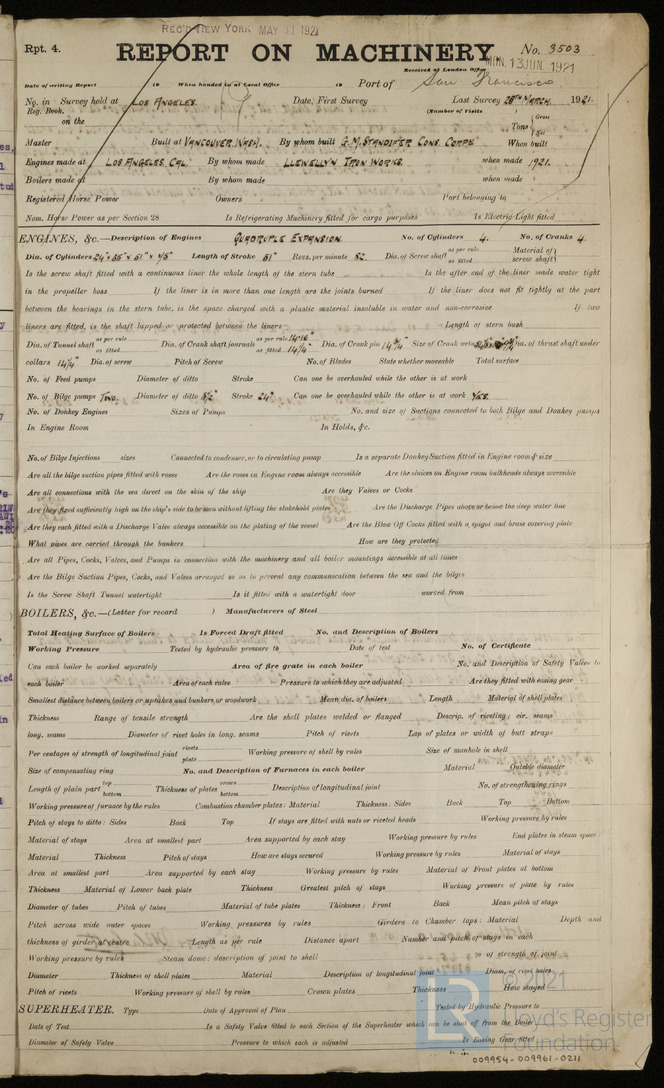 REC'D NEW YORK MAY 31 1921
Rpt. 4.
REPORT ON MACHINERY.
No. 3503
Received at London Office MON. 13 JUN. 1921
Date of writing Report 19 When handed in at Local Office 19 Port of San Francisco
No. in Reg. Book. Survey held at LOS ANGELES. Date, First Survey Last Survey 28th MARCH. 1921.
(Number of Visits
on the Tons { Gross Net
Master Built at VANCOUVER, WASH. By whom built G.M. STANDIFER CONS. CORPN When built
Engines made at LOS ANGELES CAL By whom made LLEWELLYN IRON WORKS. when made 1921.
Boilers made at By whom made when made
Registered Horse Power Owners Port belonging to
Nom. Horse Power as per Section 28 Is Refrigerating Machinery fitted for cargo purposes Is Electric Light fitted
ENGINES, &c.—Description of Engines QUADRUPLE EXPANSION. No. of Cylinders 4. No. of Cranks 4.
Dia. of Cylinders 24" × 35" × 51" × 75" Length of Stroke 51" Revs. per minute 82. Dia. of Screw shaft as per rule as fitted Material of screw shaft}
Is the screw shaft fitted with a continuous liner the whole length of the stern tube Is the after end of the liner made water tight
in the propeller boss If the liner is in more than one length are the joints burned If the liner does not fit tightly at the part
between the bearings in the stern tube, is the space charged with a plastic material insoluble in water and non-corrosive If two
liners are fitted, is the shaft lapped or protected between the liners Length of stern bush
Dia. of Tunnel shaft as per rule as fitted Dia. of Crank shaft journals as per rule 14.16" as fitted 14 3/4" Dia. of Crank pin 14 3/4" Size of Crank webs Dia. of thrust shaft under
collars 14 3/4" Dia. of screw Pitch of Screw No. of Blades State whether moveable Total surface
No. of Feed pumps Diameter of ditto Stroke Can one be overhauled while the other is at work
No. of Bilge pumps TWO. Diameter of ditto 5½" Stroke 24" Can one be overhauled while the other is at work YES.
No. of Donkey Engines Sizes of Pumps No. and size of Suctions connected to both Bilge and Donkey pumps
In Engine Room In Holds, &c.
No. of Bilge Injections sizes Connected to condenser, or to circulating pump Is a separate Donkey Suction fitted in Engine room & size
Are all the bilge suction pipes fitted with roses Are the roses in Engine room always accessible Are the sluices on Engine room bulkheads always accessible
Are all connections with the sea direct on the skin of the ship Are they Valves or Cocks
Are they fixed sufficiently high on the ship's side to be seen without lifting the stokehold plates Are the Discharge Pipes above or below the deep water line
Are they each fitted with a Discharge Valve always accessible on the plating of the vessel Are the Blow Off Cocks fitted with a spigot and brass covering plate
What pipes are carried through the bunkers How are they protected
Are all Pipes, Cocks, Valves, and Pumps in connection with the machinery and all boiler mountings accessible at all times
Are the Bilge Suction Pipes, Cocks, and Valves arranged so as to prevent any communication between the sea and the bilges
Is the Screw Shaft Tunnel watertight Is it fitted with a watertight door worked from
BOILERS, &c.—(Letter for record ) Manufacturers of Steel
Total Heating Surface of Boilers Is Forced Draft fitted No. and Description of Boilers
Working Pressure Tested by hydraulic pressure to Date of test No. of Certificate
Can each boiler be worked separately Area of fire grate in each boiler No. and Description of Safety Valves to
each boiler Area of each valve Pressure to which they are adjusted Are they fitted with easing gear
Smallest distance between boilers or uptakes and bunkers or woodwork Mean dia. of boilers Length Material of shell plates
Thickness Range of tensile strength Are the shell plates welded or flanged Descrip. of riveting: cir. seams
long. seams Diameter of rivet holes in long. seams Pitch of rivets Lap of plates or width of butt straps
Per centages of strength of longitudinal joint rivets plate Working pressure of shell by rules Size of manhole in shell
Size of compensating ring No. and Description of Furnaces in each boiler Material Outside diameter
Length of plain part top bottom Thickness of plates crown bottom Description of longitudinal joint No. of strengthening rings
Working pressure of furnace by the rules Combustion chamber plates: Material Thickness: Sides Back Top Bottom
Pitch of stays to ditto: Sides Back Top If stays are fitted with nuts or riveted heads Working pressure by rules
Material of stays Area at smallest part Area supported by each stay Working pressure by rules End plates in steam space:
Material Thickness Pitch of stays How are stays secured Working pressure by rules Material of stays
Area at smallest part Area supported by each stay Working pressure by rules Material of Front plates at bottom
Thickness Material of Lower back plate Thickness Greatest pitch of stays Working pressure of plate by rules
Diameter of tubes Pitch of tubes Material of tube plates Thickness: Front Back Mean pitch of stays
Pitch across wide water spaces Working pressures by rules Girders to Chamber tops: Material Depth and
thickness of girder at centre Length as per rule Distance apart Number and pitch of stays in each
Working pressure by rules Steam dome: description of joint to shell % of strength of joint
Diameter Thickness of shell plates Material Description of longitudinal joint Diam. of rivet holes
Pitch of rivets Working pressure of shell by rules Crown plates Thickness How stayed
SUPERHEATER. Type Date of Approval of Plan Tested by Hydraulic Pressure to
Date of Test Is a Safety Valve fitted to each Section of the Superheater which can be shut off from the Boiler
Diameter of Safety Valve Pressure to which each is adjusted Is Easing Gear fitted
© 2021
Lloyd's Register
Foundation
009954-009961-0211